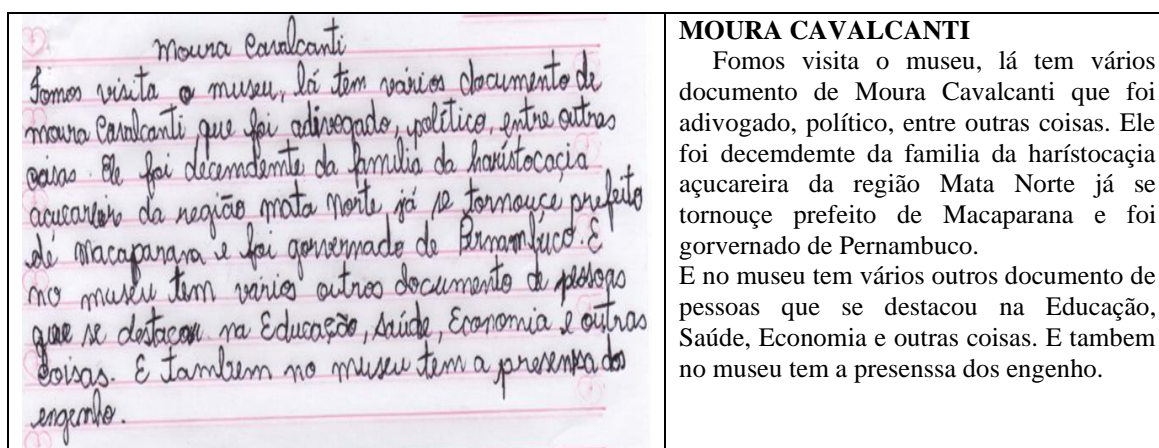 Moura Cavalcanti
Fomos visita o museu, lá tem vários documento de
moura Cavalcanti que foi adivogado, político, entre outras
coisas. Ele foi decemdemte da familia da harístocacia
açucareira da região mata Norte já se tornouçe prefeito
de Macaparana e foi gorvernado de Pernambuco. E
no museu tem vários outros documento de pessoas
que se destacou na Educação, saúde, Economia e outras
coisas. E tambem no museu tem a presenssa dos
engenho.
MOURA CAVALCANTI
Fomos visita o museu, lá tem vários
documento de Moura Cavalcanti que foi
adivogado, político, entre outras coisas. Ele
foi decemdemte da familia da harístocaçia
açucareira da região Mata Norte já se
tornouçe prefeito de Macaparana e foi
gorvernado de Pernambuco.
E no museu tem vários outros documento de
pessoas que se destacou na Educação,
Saúde, Economia e outras coisas. E tambem
no museu tem a presenssa dos engenho.